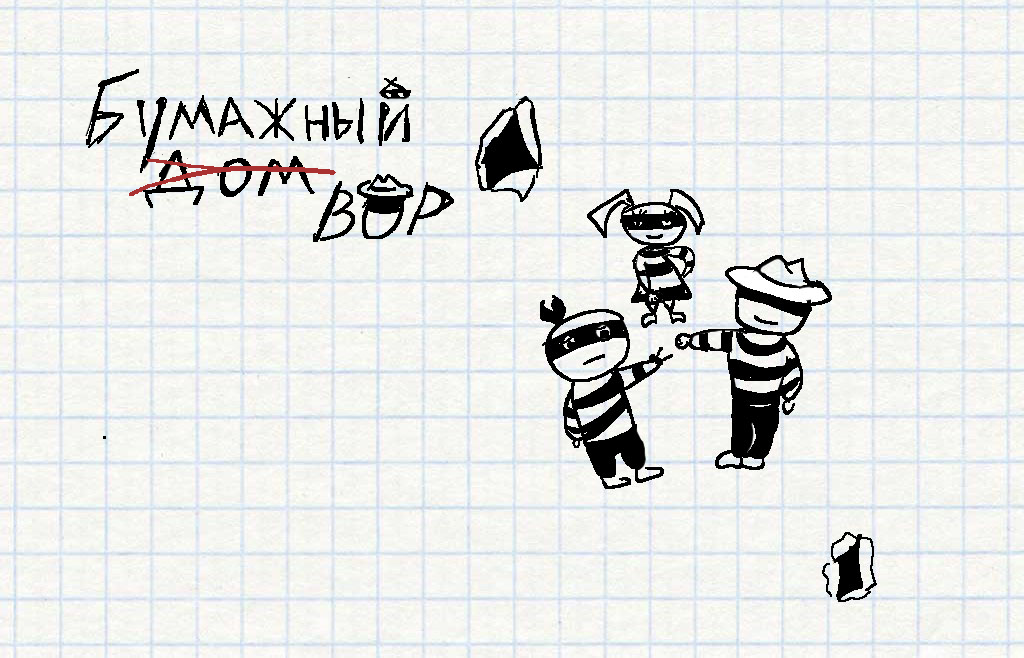 Бумажный
дом
вор